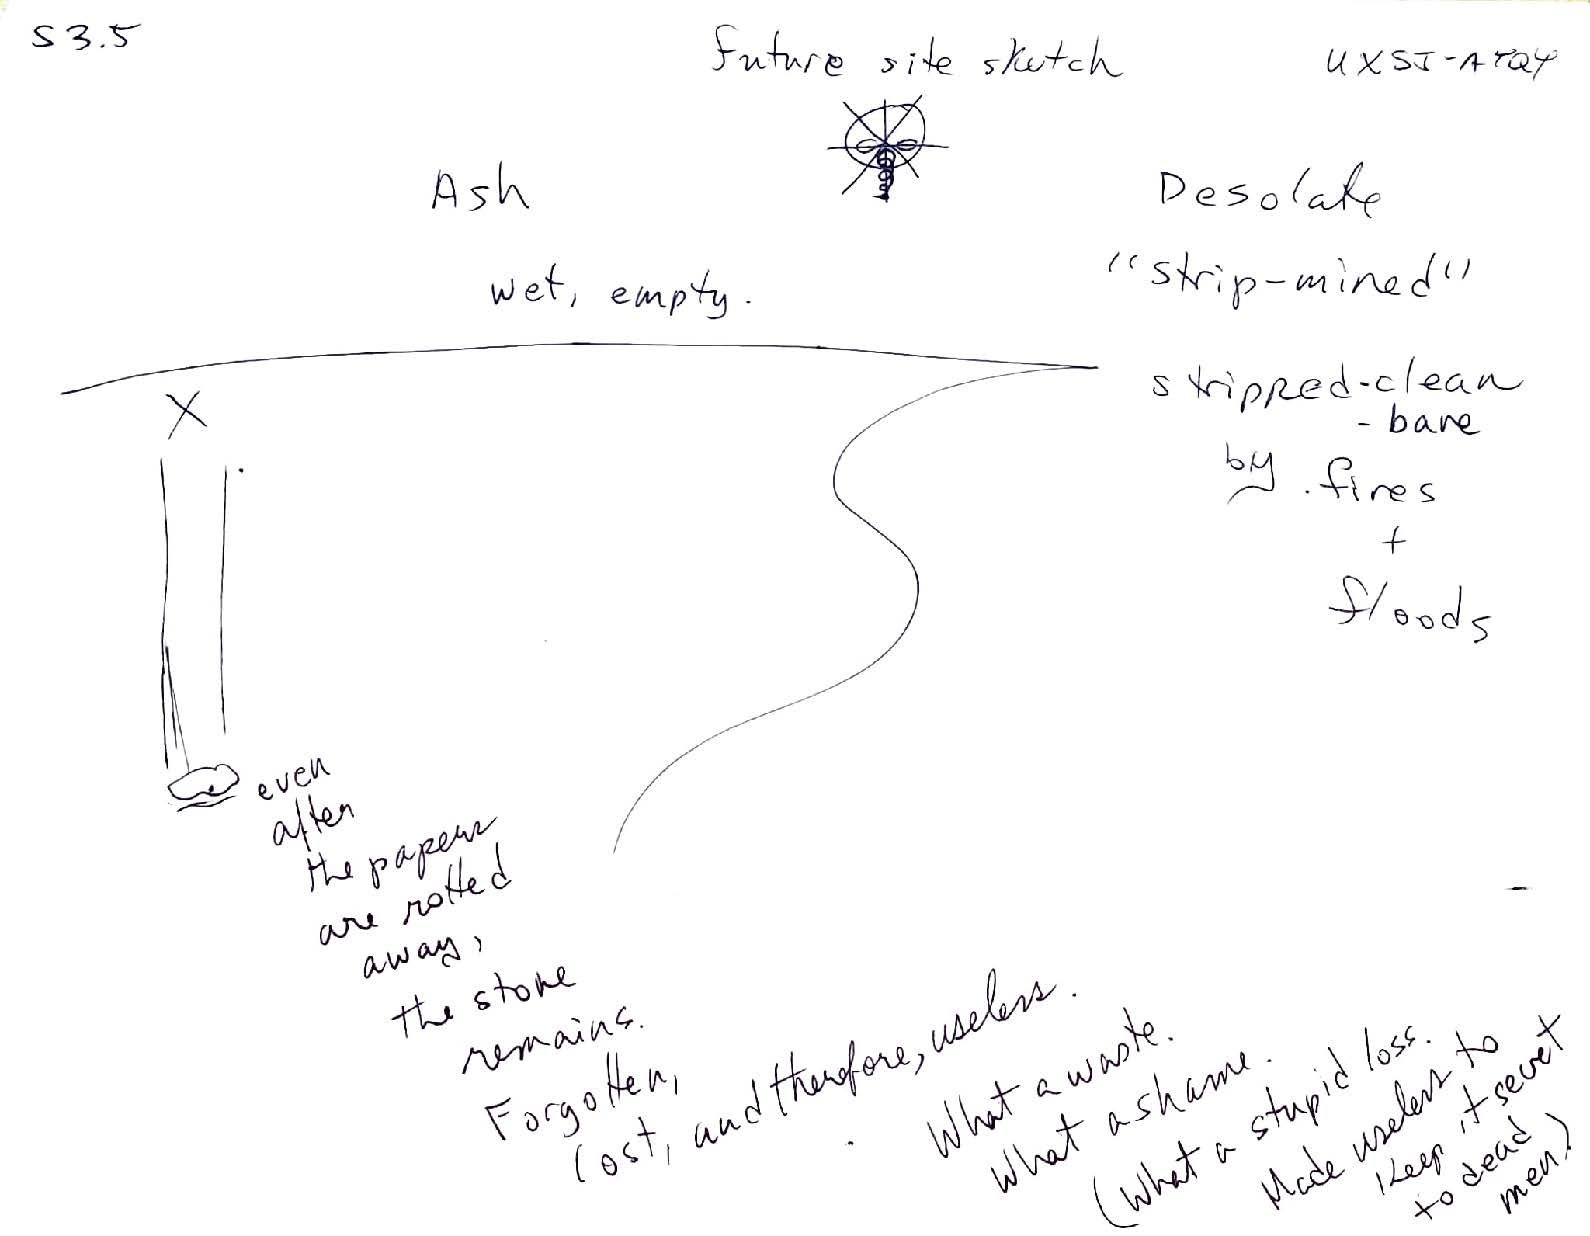 S3.5
Future site sketch
UXSJ-ATQY
Ash
Desolate
wet, empty.
"strip-mined"
X
stripped-clean
- bare
by fires
+
floods
even
after
the papers
are rotted
away,
the stone
remains.
Forgotten,
Lost, and therefore, useless.
What a waste.
What a shame.
(What a stupid loss.
Made useless to
keep it secret
to dead
men.)